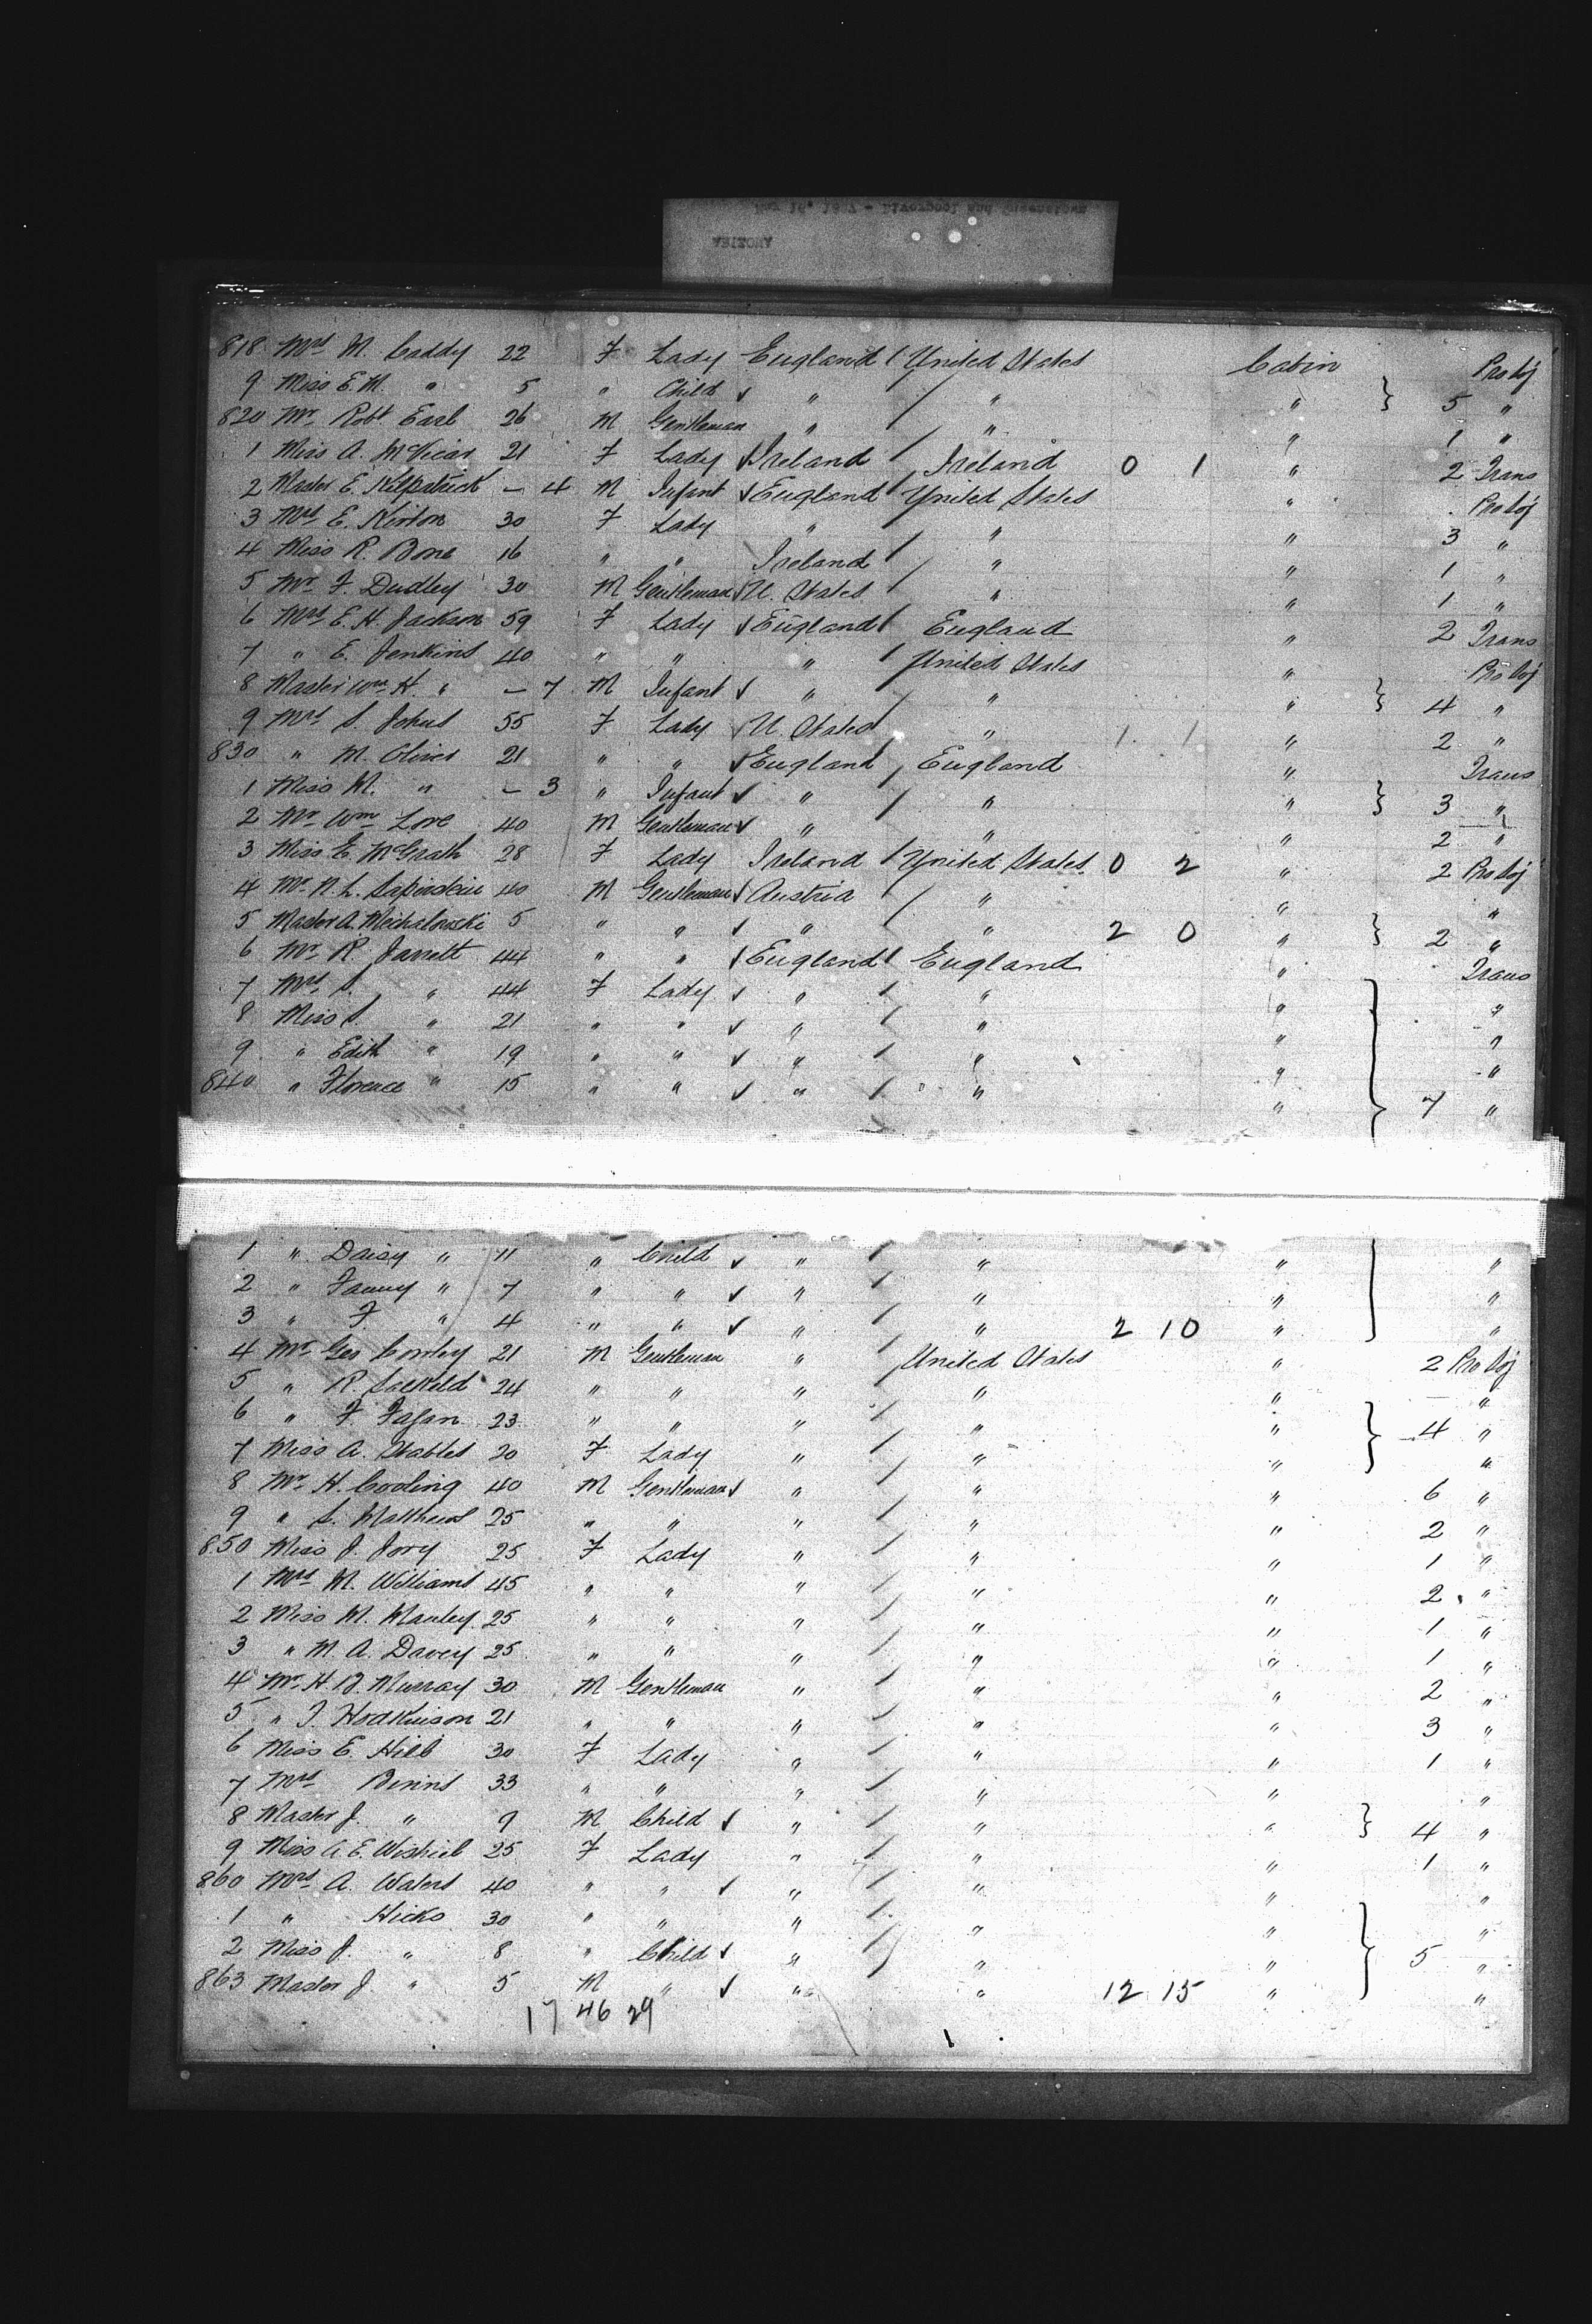 818 Mrs M. Caddy 22 F Lady England / United States Cabin Pro Soj
9 Miss E. M. " 5 " Child ✓ " / " " } 5 "
820 Mr Robt Earl 26 M Gentleman " / " " 1 "
1 Miss A. McVicar 21 F Lady ✓ Ireland Ireland 0 1 " 2 Trans
2 Master E. Kilpatrick – 4 M Infant ✓ England / United States " Pro Soj
3 Mrs E. Kirton 30 F Lady " / " " 3 "
4 Miss R. Bone 16 " " Ireland / " " 1 "
5 Mr F. Dudley 30 M Gentleman ✓ U. States " " 1 "
6 Mrs E. H. Jackson 59 F Lady ✓ England / England " 2 Trans
7 " E. Jenkins 40 " " " / United States " Pro Soj
8 Master Wm H. " – 7 M Infant ✓ " / " " } 4 "
9 Mrs S. Johns 55 F Lady ✓ U. States " 1 1 " 2 "
830 " M. Oliver 21 " " ✓ England / England " Trans
1 Miss M. " – 3 " Infant ✓ " / " " } 3 "
2 Mr Wm Love 40 M Gentleman ✓ " " " 2 "
3 Miss E. McGrath 28 F Lady Ireland / United States 0 2 " 2 Pro Soj
4 Mr N. L. 40 M Gentleman ✓ Austria / " " "
5 Master A. Michalowski 5 " " ✓ " / " 2 0 " } 2 "
6 Mr R. Jarrett 44 " " ✓ England / England " Trans
7 Mrs S. " 44 F Lady ✓ " / " " "
8 Miss S. " 21 " " ✓ " / " " "
9 " Edith " 19 " " ✓ " / " " "
840 " Florence " 15 " " ✓ " / " " } 7 "
1 " Daisy " 11 " Child ✓ " / " " "
2 " Fanny " 7 " " ✓ " / " " "
3 " F. " 4 " " ✓ " / " 2 10 " "
4 Mr Geo 21 M Gentleman " / United States " 2 Pro Soj
5 " R. Salkeld 24 " " " / " " "
6 " F. Fagan 23 " " " / " " } 4 "
7 Miss A. Stables 20 F Lady " / " " "
8 Mr H. Cooling 40 M Gentleman ✓ " / " " 6 "
9 " S. Matthews 25 " " " / " " 2 "
850 Miss J. Jory 25 F Lady " / " " 1 "
1 Mrs M. Williams 45 " " " / " " 2 "
2 Miss M. Manley 25 " " " / " " 1 "
3 " M. A. Davey 25 " " " / " " 1 "
4 Mr H. B. Murray 30 M Gentleman " / " " 2 "
5 " J. Hodkinson 21 " " " / " " 3 "
6 Miss E. Hill 30 F Lady " / " " 1 "
7 Mrs Binns 33 " " " / " " "
8 Master J. " 9 M Child ✓ " / " " } 4 "
9 Miss A. E. 25 F Lady " / " " 1 "
860 Mrs A. Waters 40 " " ✓ " / " " "
1 " Hicks 30 " " " / " " "
2 Miss J. " 8 " Child ✓ " / " " } 5 "
863 Master J. " 5 M " ✓ " " 12 15 " "
17 46 29